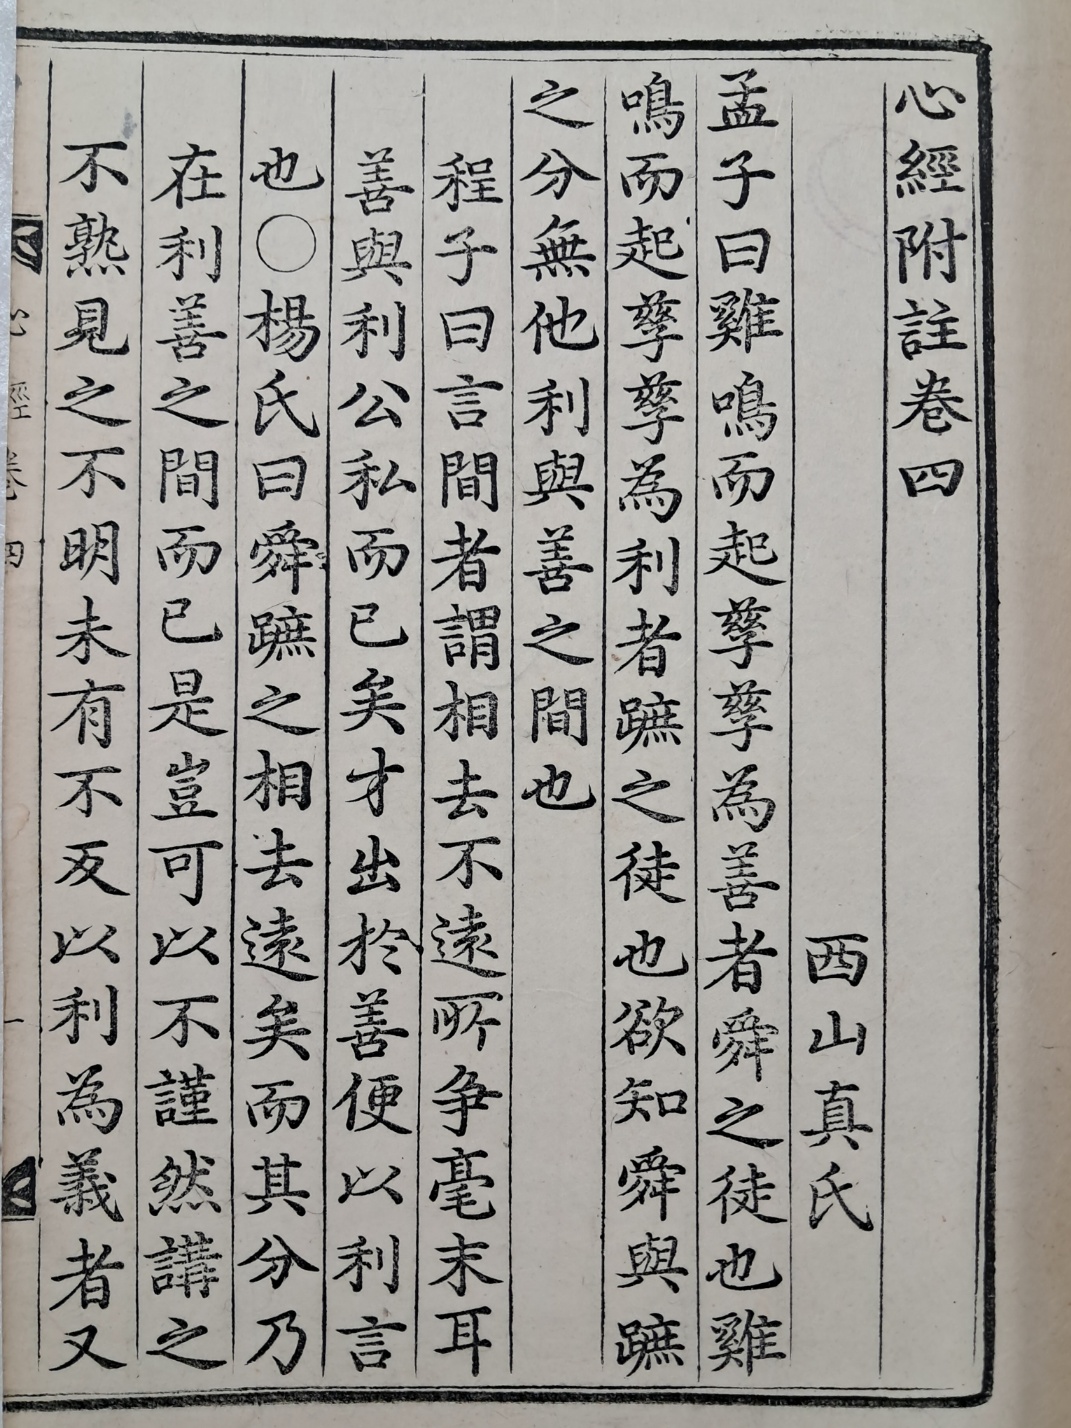 心經附註卷四
西山真氏
孟子曰雞鳴而起孳孳為善者舜之徒也雞
鳴而起孳孳為利者蹠之徒也欲知舜與蹠
之分無他利與善之間也
程子曰言間者謂相去不遠所争毫末耳
善與利公私而已矣才出於善便以利言
也○楊氏曰舜蹠之相去遠矣而其分乃
在利善之間而已是豈可以不謹然講之
不熟見之不明未有不反以利為義者又
心經卷四 一